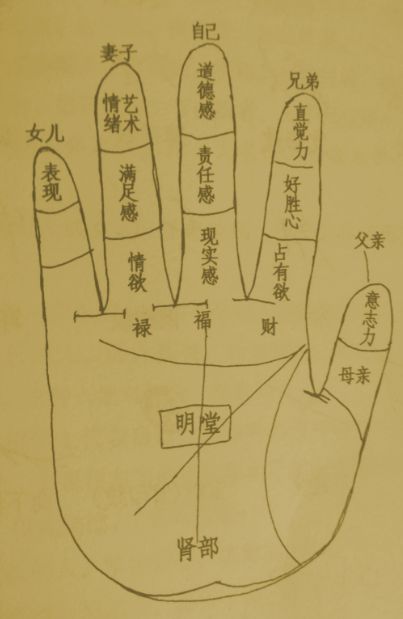 自己
妻子
兄弟
女儿
父亲
道德感
责任感
现实感
情绪 艺术
满足感
情欲
直觉力
好胜心
占有欲
表现
意志力
母亲
禄
福
财
明堂
肾部